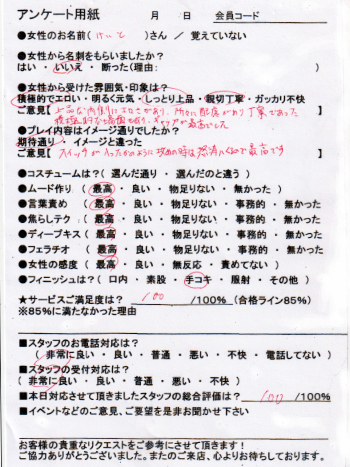 アンケート用紙　　月　　日　会員コード
●女性のお名前(けいと)さん / 覚えていない
●女性から名刺をもらいましたか?
はい ・ いいえ ・ 断った(理由:　　)
●女性から受けた雰囲気・印象は?
積極的でエロい・明るく元気・しっとり上品・親切丁寧・ガッカリ不快
ご意見【
●プレイ内容はイメージ通りでしたか?
期待通り ・ イメージと違った
ご意見【 スイッチが入ったかのように攻めの時は 最高です
●コスチュームは?( 選んだ通り ・ 選んだのと違う )
●ムード作り ( 最高 ・ 良い ・ 物足りない ・ 無かった )
●言葉責め ( 最高 ・ 良い ・ 物足りない ・ 事務的 ・ 無かった
●焦らしテク ( 最高 ・ 良い ・ 物足りない ・ 事務的 ・ 無かった
●ディープキス ( 最高 ・ 良い ・ 物足りない ・ 事務的 ・ 無かった
●フェラチオ ( 最高 ・ 良い ・ 物足りない ・ 事務的 ・ 無かった
●女性の感度 ( 最高 ・ 良い ・ 無反応 ・ 責めてない )
●フィニッシュは?( 口内 ・ 素股 ・ 手コキ ・ 服射 ・ その他 )
★サービスご満足度は? 100 /100% (合格ライン85%)
※85%に満たなかった理由
■スタッフのお電話対応は?
( 非常に良い ・ 良い ・ 普通 ・ 悪い ・ 不快 ・ 電話してない )
■スタッフの受付対応は?
( 非常に良い ・ 良い ・ 普通 ・ 悪い ・ 不快 )
■本日対応させて頂きましたスタッフの総合評価は? 100 /100%
■イベントなどのご意見、ご要望を是非お聞かせ下さい
お客様の貴重なリクエストをご参考にさせて頂きます!
ご協力ありがとうございました。またのご来店、心よりお待ちしております。